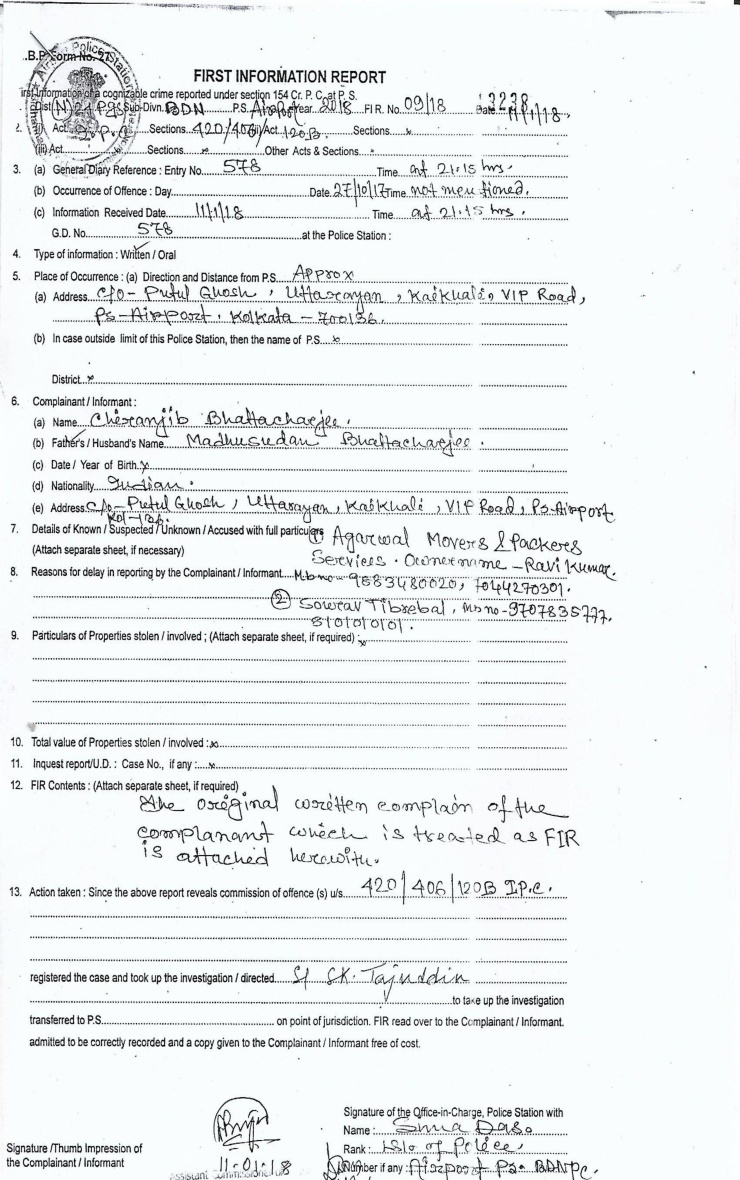 B.P. Form No. 27
FIRST INFORMATION REPORT
First Information of a cognizable crime reported under section 154 Cr. P. C. at P. S.
Dist (N) 24 Pgs Sub-Divn. BDN P.S. Airport Year 2018 F.I R. No. 09/18 Date 11/1/18.
3238
2. (i) Act I.P.C Sections 420/406 (ii) Act 120B Sections x
(iii) Act Sections x Other Acts & Sections x
3. (a) General Diary Reference : Entry No. 578 Time at 21:15 hrs.
(b) Occurrence of Offence : Day Date 27/10/17 Time not mentioned.
(c) Information Received Date 11/1/18 Time at 21:15 hrs.
G.D. No. 578 at the Police Station :
4. Type of information : Written / Oral
5. Place of Occurrence : (a) Direction and Distance from P.S. Approx
(a) Address C/o- Putul Ghosh, Uttarayan, Kaikhali, VIP Road,
Ps-Airport. Kolkata - 700136.
(b) In case outside limit of this Police Station, then the name of P.S. x
District x
6. Complainant / Informant :
(a) Name Chiranjib Bhattacharjee.
(b) Father's / Husband's Name Madhusudan Bhattacharjee.
(c) Date / Year of Birth x
(d) Nationality Indian.
(e) Address C/o- Putul Ghosh, Uttarayan, Kaikhali, VIP Road, Ps-Airport
Kol-136.
7. Details of Known / Suspected / Unknown / Accused with full particulars ① Agarwal Movers & Packers
(Attach separate sheet, if necessary) Services. Owner name - Ravi Kumar.
8. Reasons for delay in reporting by the Complainant / Informant Mb no- 9883480020, 7044270301.
② Sourav Tibrebal, Mb no-9707835777.
8101010101.
9. Particulars of Properties stolen / involved ; (Attach separate sheet, if required) : x
10. Total value of Properties stolen / involved : x
11. Inquest report/U.D. : Case No., if any : x
12. FIR Contents : (Attach separate sheet, if required)
The original written complain of the
complanant which is treated as FIR
is attached herewith.
13. Action taken : Since the above report reveals commission of offence (s) u/s. 420/406/120B I.P.C.
registered the case and took up the investigation / directed SI SK. Tajuddin
to take up the investigation
transferred to P.S. on point of jurisdiction. FIR read over to the Complainant / Informant.
admitted to be correctly recorded and a copy given to the Complainant / Informant free of cost.
Signature of the Office-in-Charge, Police Station with
Name : Sima Das.
Signature /Thumb Impression of
Rank : of Police,
the Complainant / Informant
11-01-18
Number if any : Airport Ps. BDNPC.